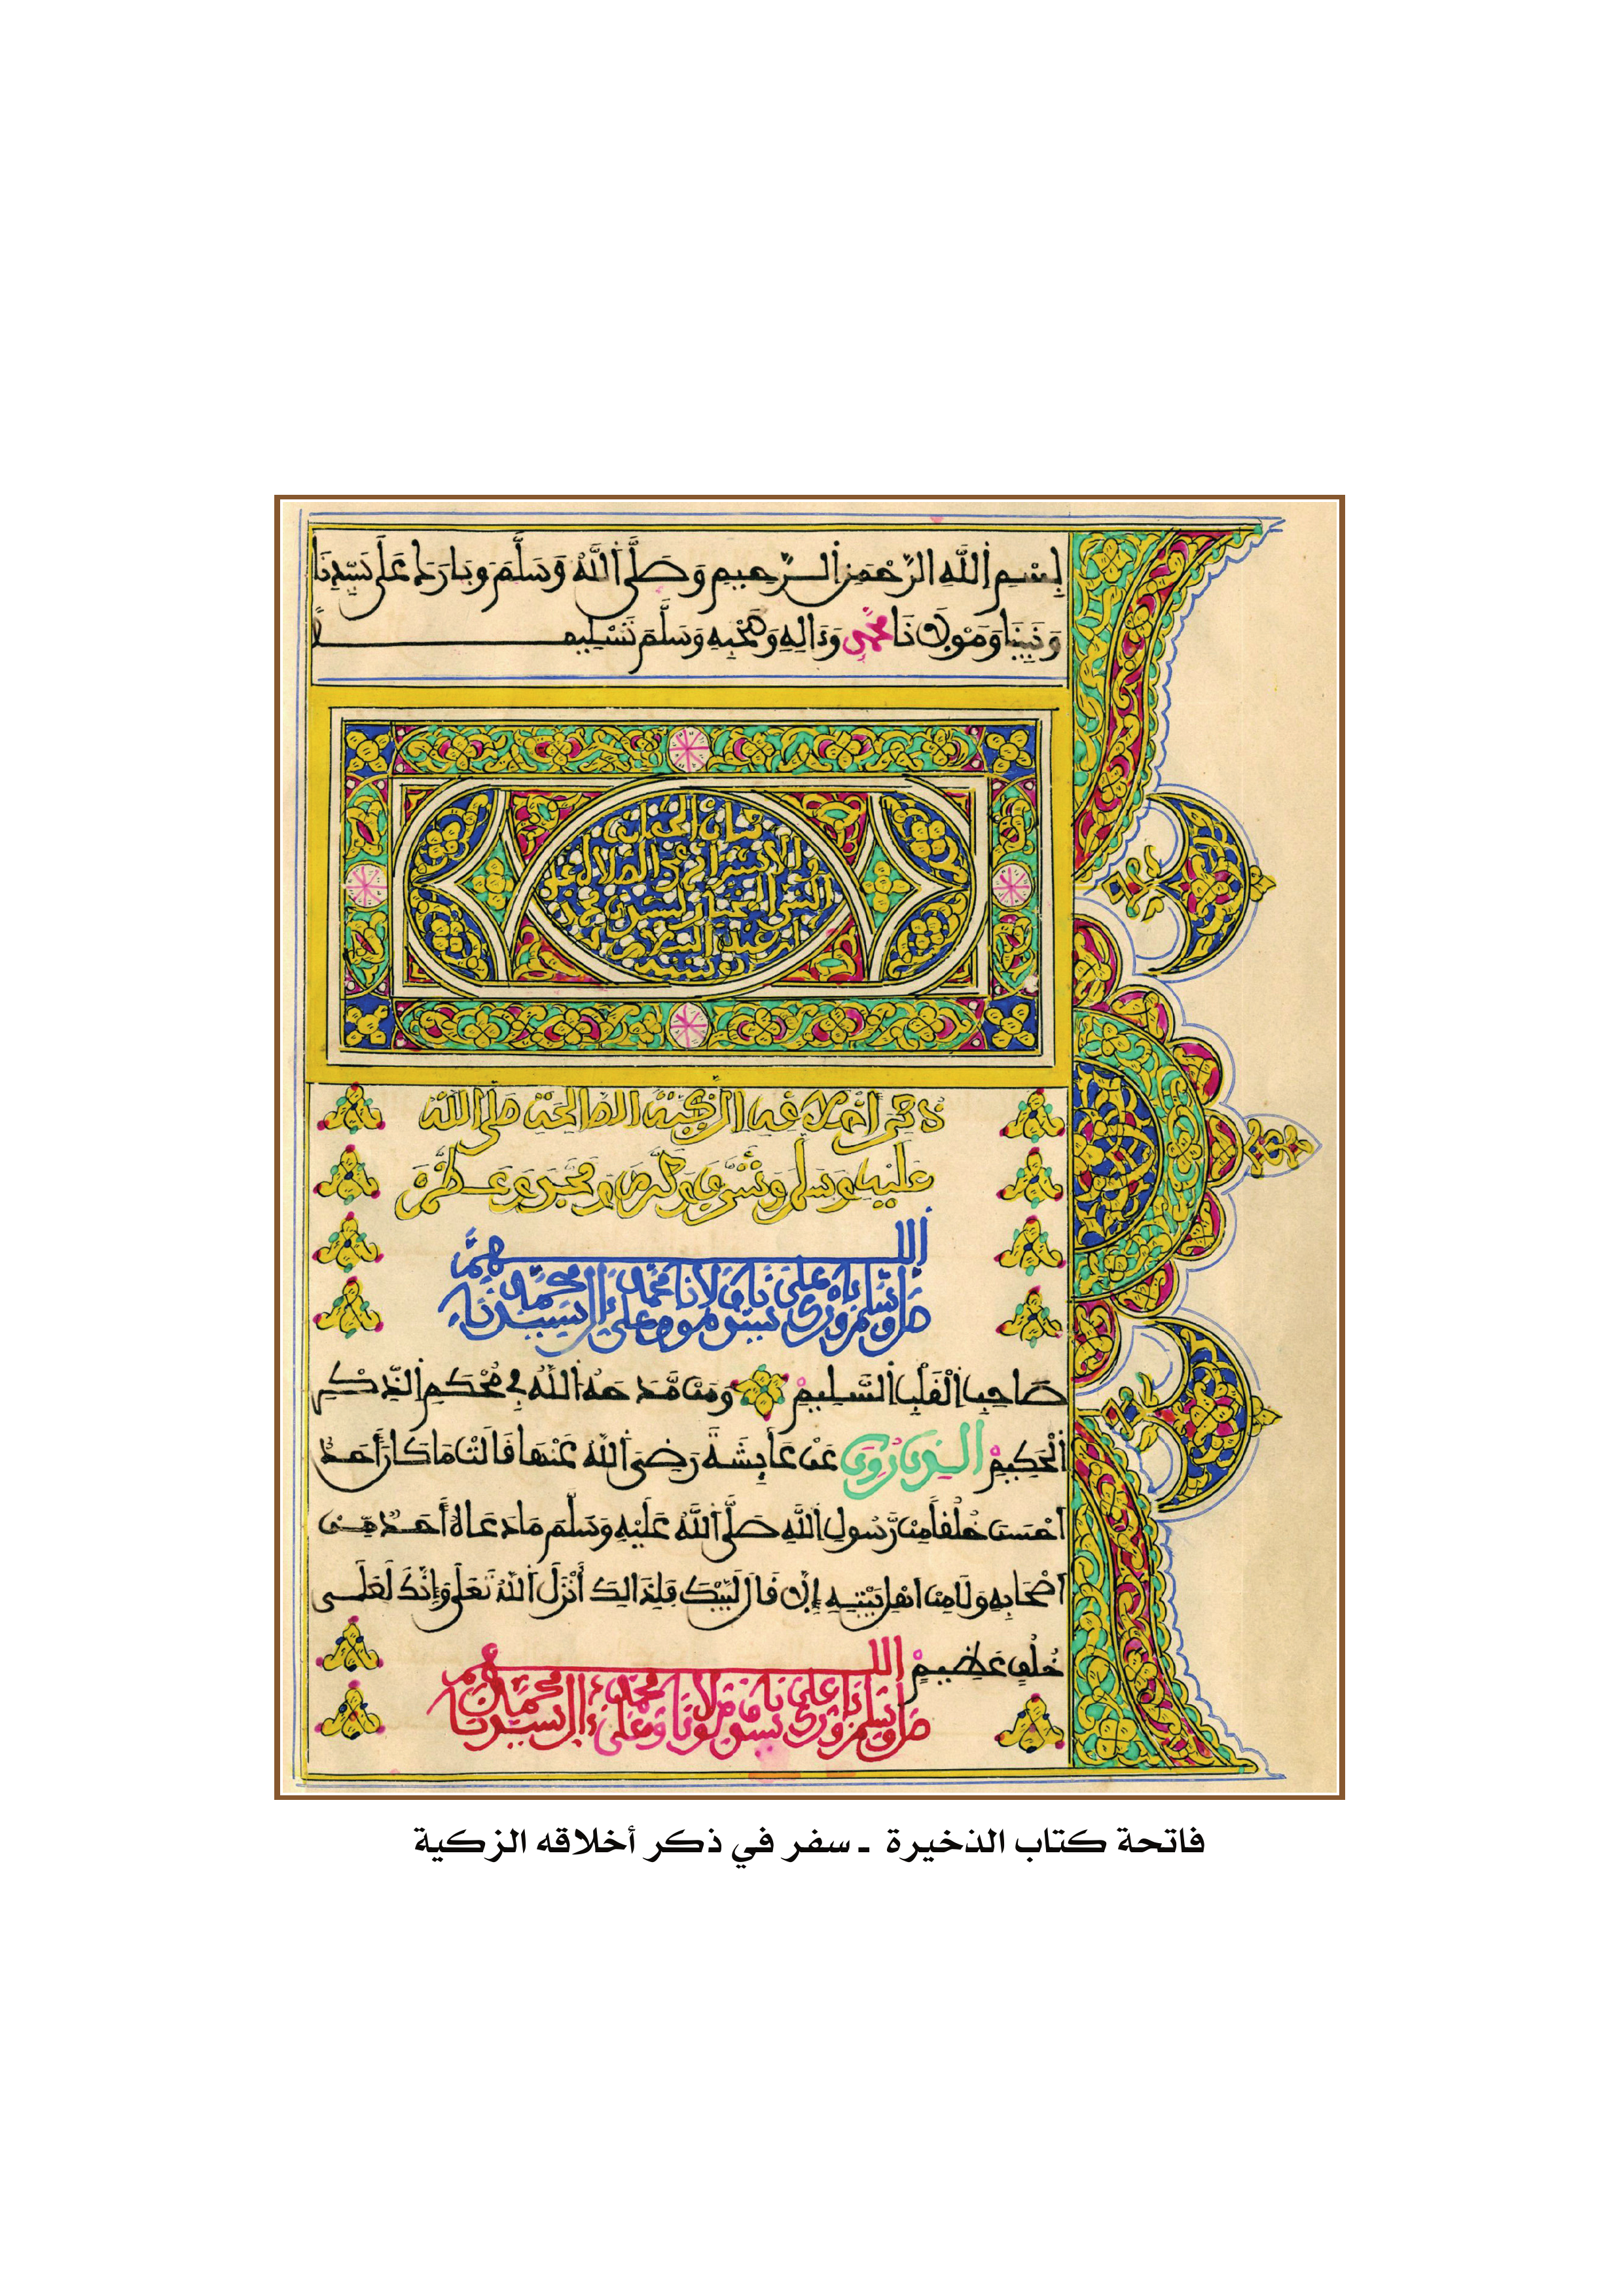 بِسْمِ اِ۬للَّهِ اِ۬لرَّحْمَٰنِ اِ۬لرَّحِيمِ وَصَلَّى اَ۬للَّهُ وَسَلَّمَ وَبَارَكَ عَلَى سَيِّدِنَا
وَنَبِيِّنَا وَمَوْلَانَا مُحَمَّدٍ وَءَالِهِ وَصَحْبِهِ وَسَلَّمَ تَسْلِيماً
ذكر أخلاقه الزكية الصالحة صلى الله
عليه وسلم وشرف وكرم ومجد وعظم
اللهم
صل وسلم وبارك على سيدنا ومولانا محمد وعلى ءال سيدنا محمد
صَاحِبِ اِ۬لْقَلْبِ اِ۬لسَّلِيمْ وَمَن مَّدَحَهُ اَ۬للَّهُ فِي مُحْكَمِ اِ۬لذِّكْرِ
اِ۬لْحَكِيمْ الذي روي عَنْ عَائِشَةَ رَضِيَ اَ۬للَّهُ عَنْهَا قَالَتْ مَا كَانَ أَحَدٌ
أَحْسَنَ خُلُقاً مِن رَّسُولِ اِ۬للَّهِ صَلَّى اَ۬للَّهُ عَلَيْهِ وَسَلَّمَ مَا دَعَاهُ أَحَدٌ مِنْ
أَصْحَابِهِ وَلَا مِنْ أَهْلِ بَيْتِهِ إِلَّا قَالَ لَبَّيْكَ فَلِذَالِكَ أَنْزَلَ اَ۬للَّهُ تَعَلَى وَإِنَّكَ لَعَلَى
خُلُقٍ عَظِيمٍ اللهم
صل وسلم وبارك على سيدنا ومولانا محمد وعلى ءال سيدنا محمد
فاتحة كتاب الذخيرة - سفر في ذكر أخلاقه الزكية